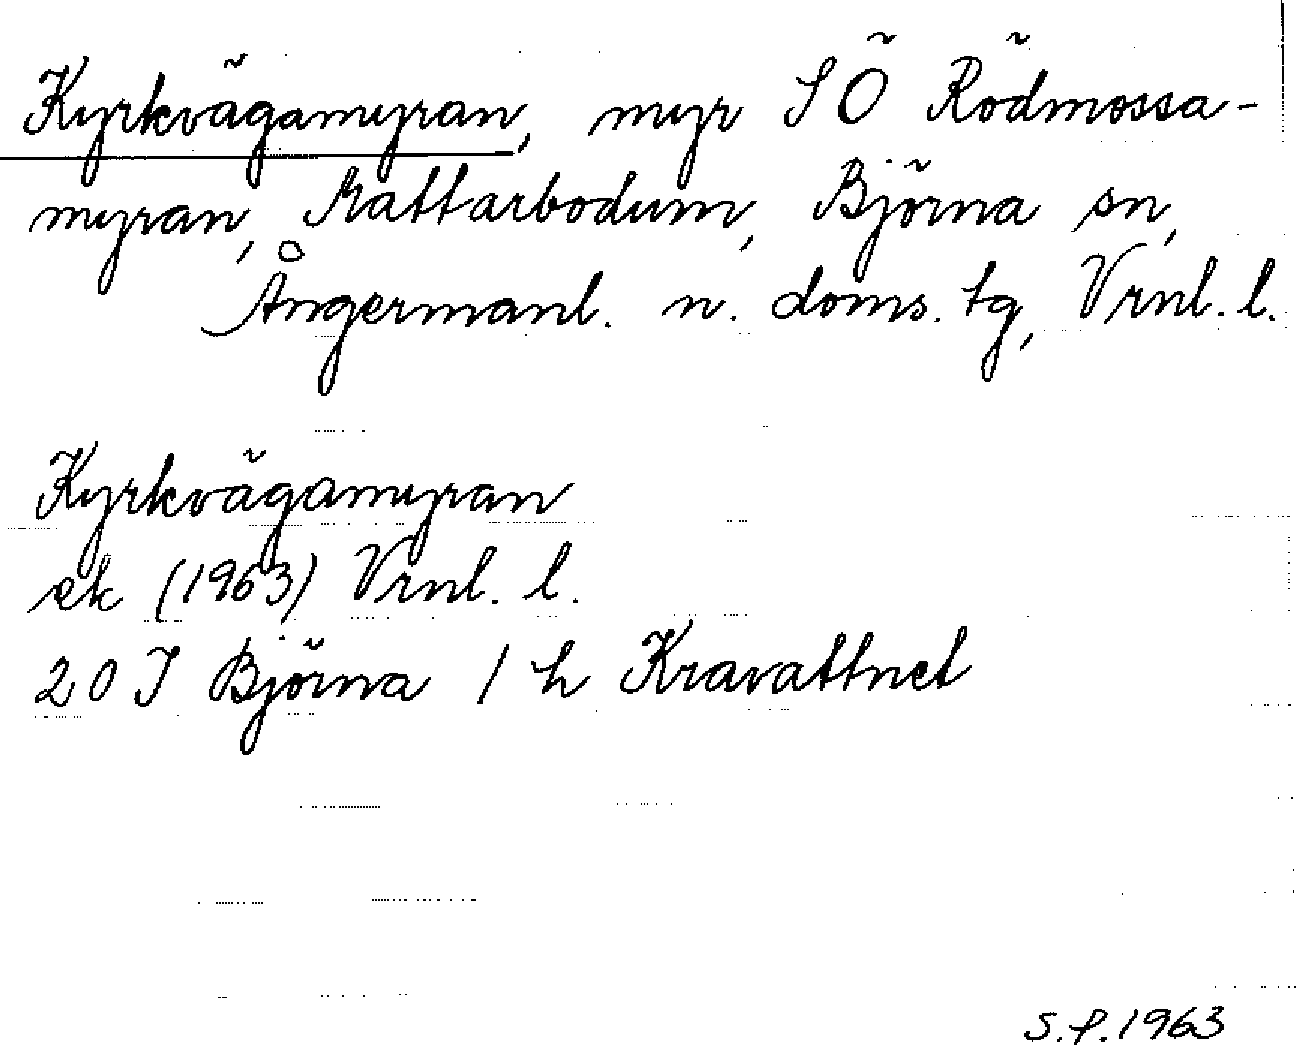 Kyrkvägamyran, myr SÖ Rödmossa-
myran, Mattarbodum, Björna sn,
Ångermanl. n. doms. tg, Vrnl. l.
Kyrkvägamyran
ek (1963) Vrnl. l.
20 J Björna / h Kravattnet
S.P. 1963